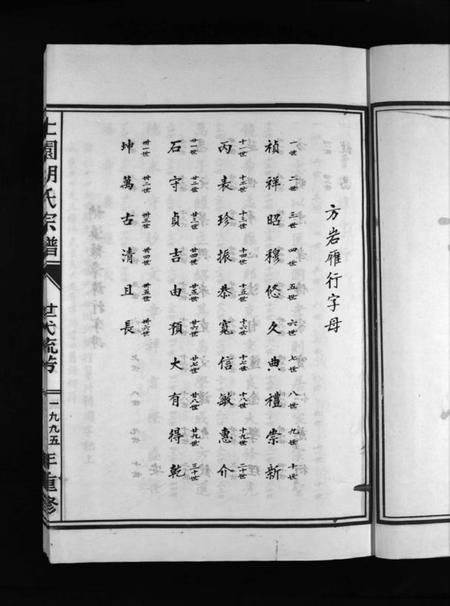 方岩雁行字母
一世 二世 三世 四世 五世 六世 七世 八世 九世 十世
禎祥昭穆悠久典禮崇新
十一世 十二世 十三世 十四世 十五世 十六世 十七世 十八世 十九世 二十世
丙表珍振恭寬信敏惠介
廿一世 廿二世 廿三世 廿四世 廿五世 廿六世 廿七世 廿八世 廿九世 三十世
石守貞吉由預大有得乾
卅一世 卅二世 卅三世 卅四世 卅五世 卅六世
坤萬古清且長
園胡氏宗譜
世代流芳
一九九五年重修